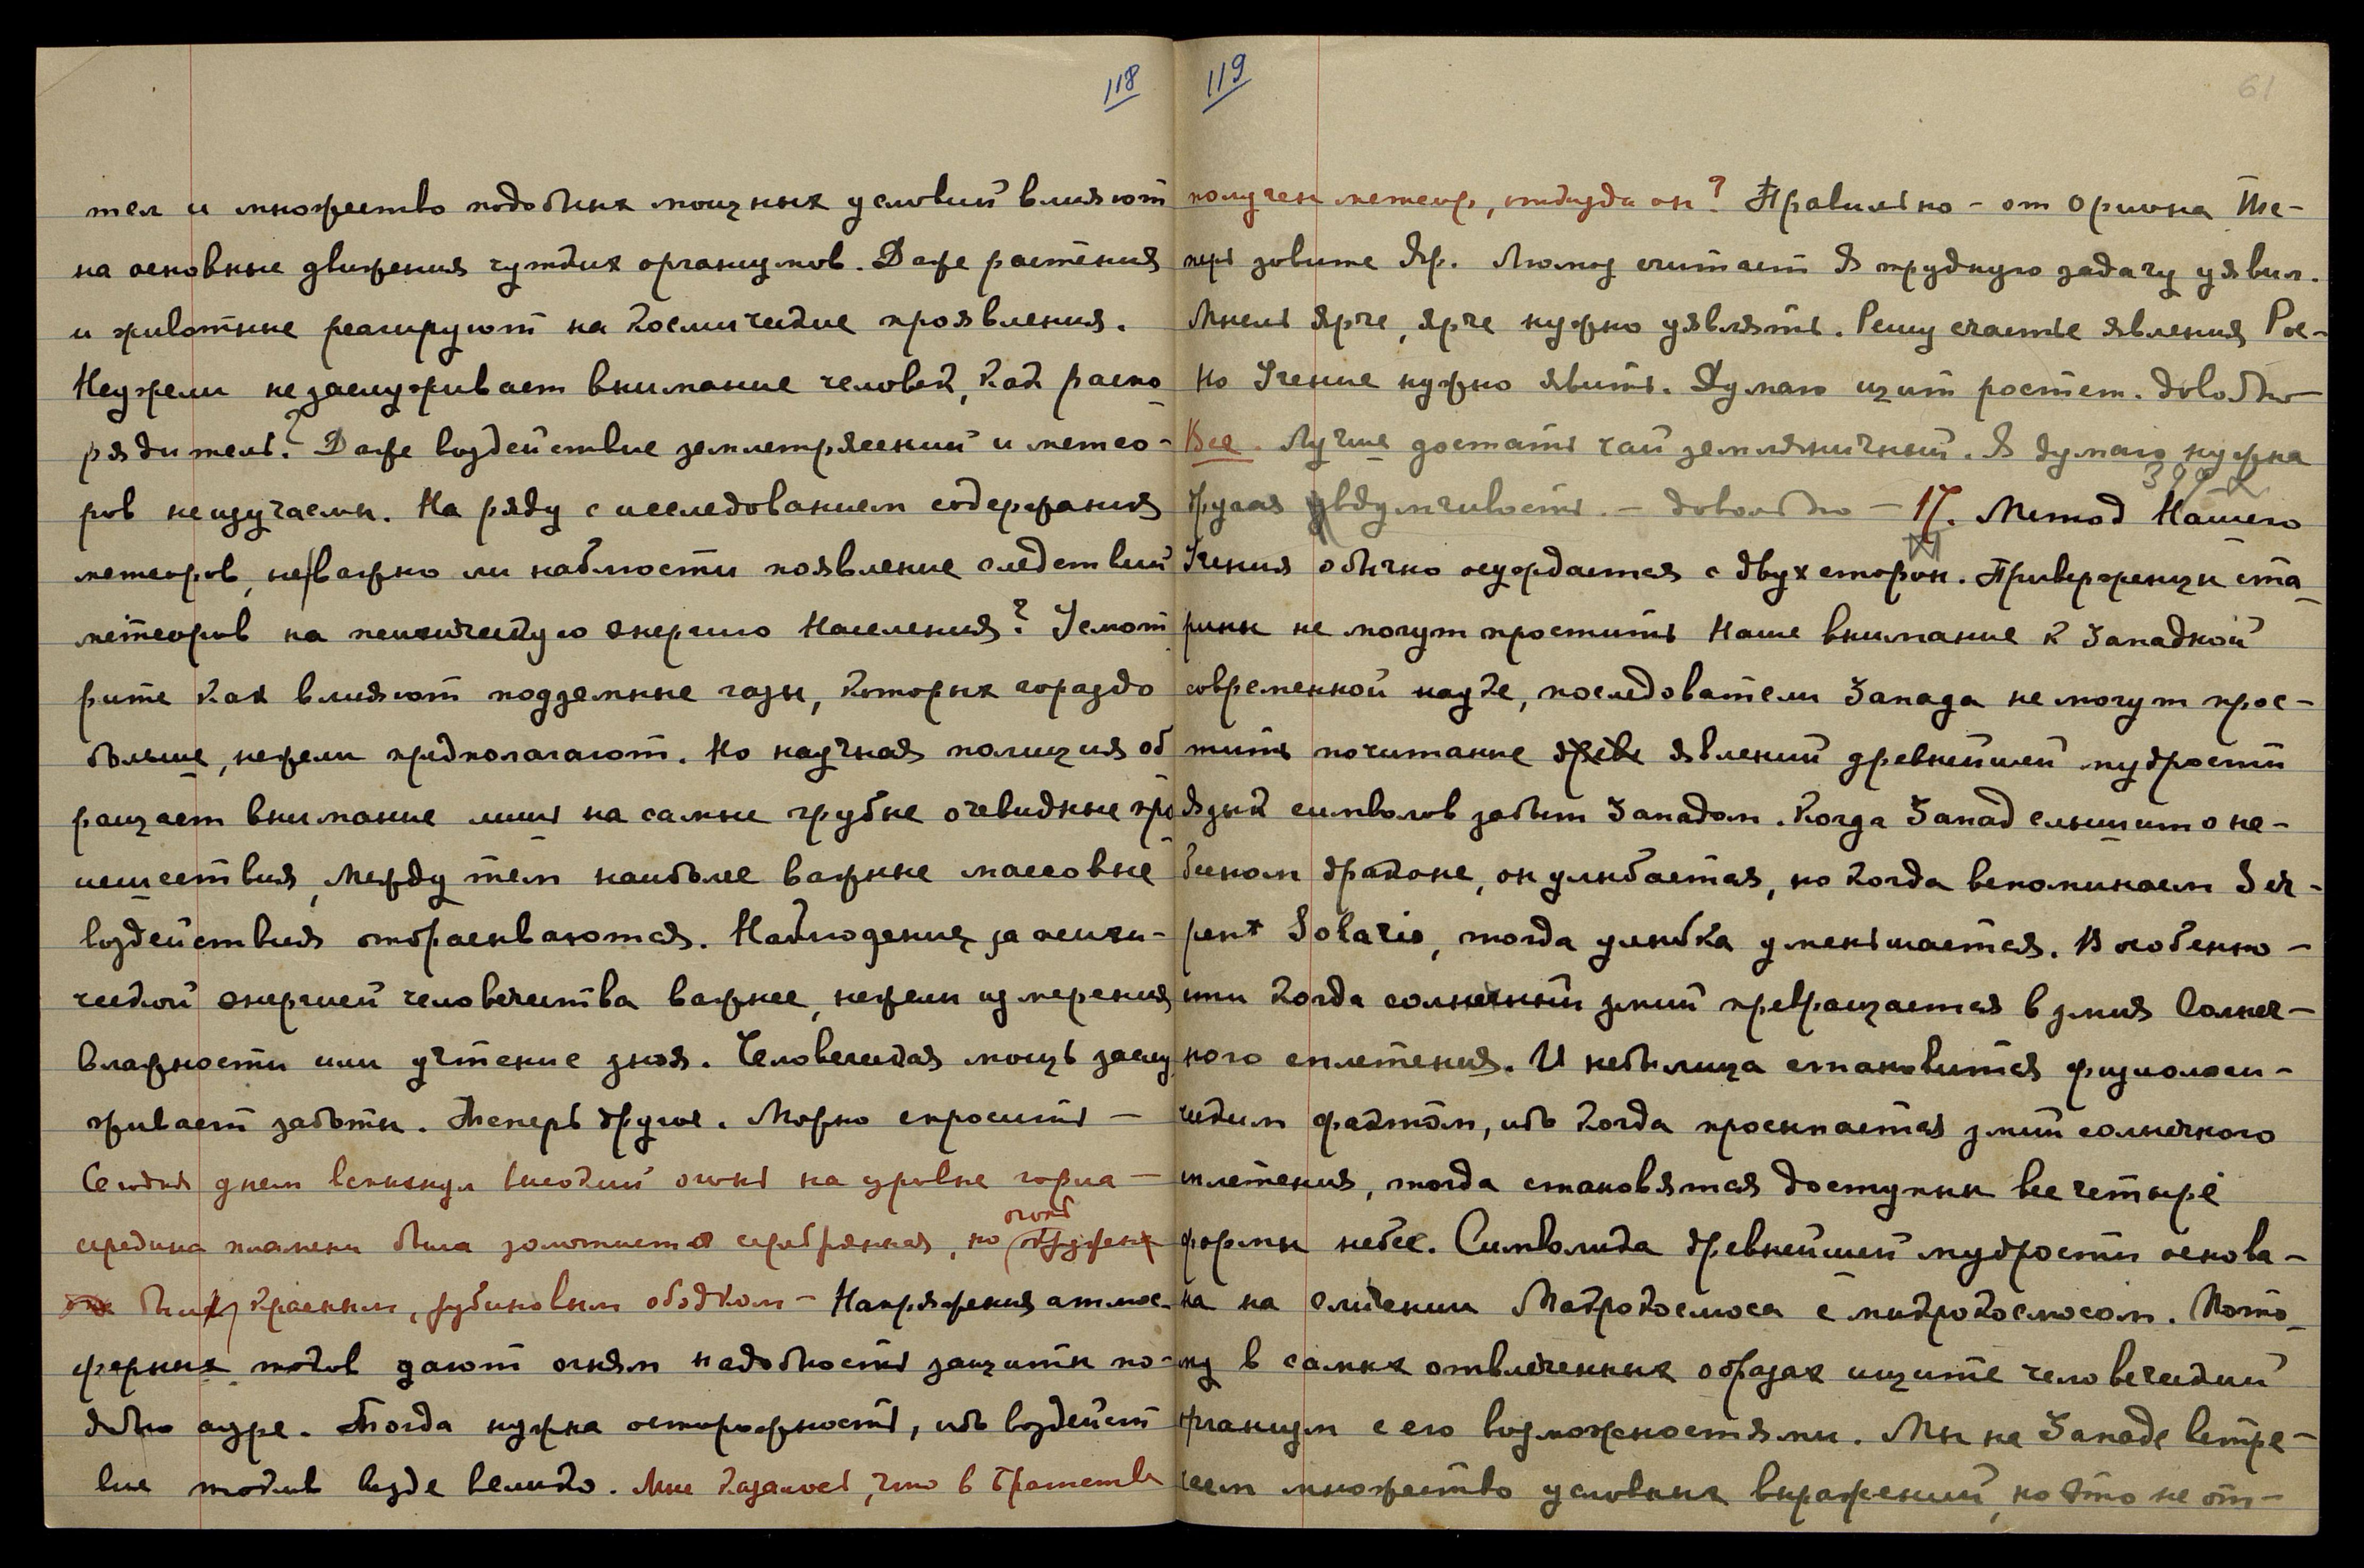 118
тел и множество подобных мощных условий влияют
на основные движения чутких организмов. Даже растения
и животные реагируют на космические проявления.
Неужели не заслуживает внимание человек, как распо-
рядитель? Даже воздействие землетрясений и метео-
ров не изучаемы. На ряду с исследованием содержания
метеоров, не важно ли наблюсти появление следствий
метеоров на психическую энергию населения? Усмот-
рите как влияют подземные газы, которых гораздо
больше, нежели предполагают. Но научная полиция об
ращает внимание лишь на самые грубые очевидные про
исшествия, между тем наиболее важные массовые
воздействия отбрасываются. Наблюдения за психи-
ческой энергией человечества важнее, нежели измерения
влажности или учтение зноя. Человеческая мощь заслу
живает заботы. Теперь другое. Можно спросить —
Сегодня днем вспыхнул высокий огонь на уровне горла —
середина пламени была золотистая серебрянная, но огонь
был красным, рубиновым ободком — Напряжения атмос-
ферных токов дают огням надобность защиты по-
добно ауре. Тогда нужна осторожность, ибо воздейст
вие токов везде велико. Мне казалось, что в Братстве
119
61
получен метеор, откуда он? Правильно - от Ориона Те-
перь зовите Яр. Люмоу считает Я трудную задачу уявил.
Мысль ярче, ярче нужно уявлять. Решу счастье явления Рос-
Но Учение нужно явить. Думаю щит ростет. Довольно —
Все. Лучше достать чай земляничный. Я думаю нужна
другая вдумчивость. — довольно — 17. Метод Нашего
Учения обычно осуждается с двух сторон. Приверженцы ста-
рины не могут простить Наше внимание к Западной
современной науке, последователи Запада не могут прос-
тить почитание древ явлений древнейшей мудрости
Язык символов забыт Западом. Когда Запад слышит о не-
бином драконе, он улыбается, но когда вспоминаем Ser-
pent Solaris, тогда улыбка уменьшается. В особенно-
сти когда солнечный змий превращается в змия Солнеч-
ного сплетения. И небылица становится физиологи-
ческим фактом, ибо когда просыпается змий солнечного
сплетения, тогда становятся доступны все четыре
формы небес. Символика древнейшей мудрости основа-
на на сличении Макрокосмоса с микрокосмосом. Пото-
му в самых отвлеченных образах ищите человеческий
организм с его возможностями. Мы на Западе встре-
чаем множество условных выражений, но это не от-